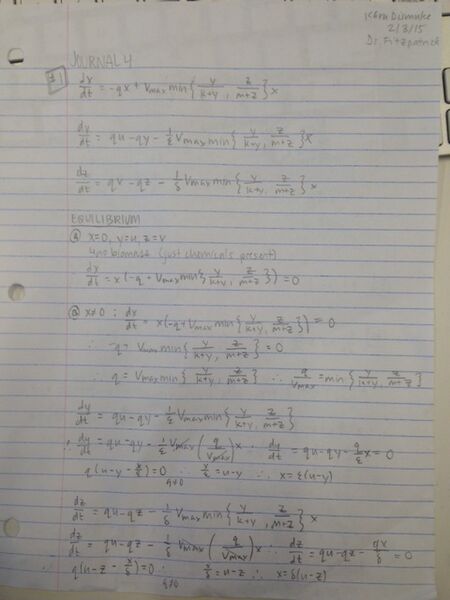 Kbra Dismuke
2/3/15
Dr. Fitzpatrick
JOURNAL 4
#1 dx/dt = -qx + Vmax min{ y/k+y , z/m+z } x
dy/dt = qu - qy - 1/ε Vmax min{ y/k+y , z/m+z } x
dz/dt = qv - qz - 1/δ Vmax min{ y/k+y , z/m+z } x
EQUILIBRIUM
@ x=0, y=u, z=v
no biomass (just chemicals present)
dx/dt = x(-q + Vmax min{ y/k+y , z/m+z }) = 0
@ x≠0 : dx/dt = x(-q + Vmax min{ y/k+y , z/m+z }) = 0
∴ -q + Vmax min{ y/k+y , z/m+z } = 0
∴ q = Vmax min{ y/k+y , z/m+z } ∴ q/Vmax = min{ y/k+y , z/m+z }
dy/dt = qu - qy - 1/ε Vmax min{ y/k+y , z/m+z }
∴ dy/dt = qu - qy - 1/ε Vmax ( q/Vmax ) x ∴ dy/dt = qu - qy - q/ε x = 0
q(u - y - x/ε) = 0 ∴ x/ε = u-y ∴ x = ε(u-y)
q≠0
dz/dt = qu - qz - 1/δ Vmax min{ y/k+y , z/m+z } x
dz/dt = qu - qz - 1/δ Vmax ( q/Vmax ) x ∴ dz/dt = qu - qz - qx/δ = 0
q(u - z - x/δ) = 0 ∴ x/δ = u-z ∴ x = δ(u-z)
q≠0